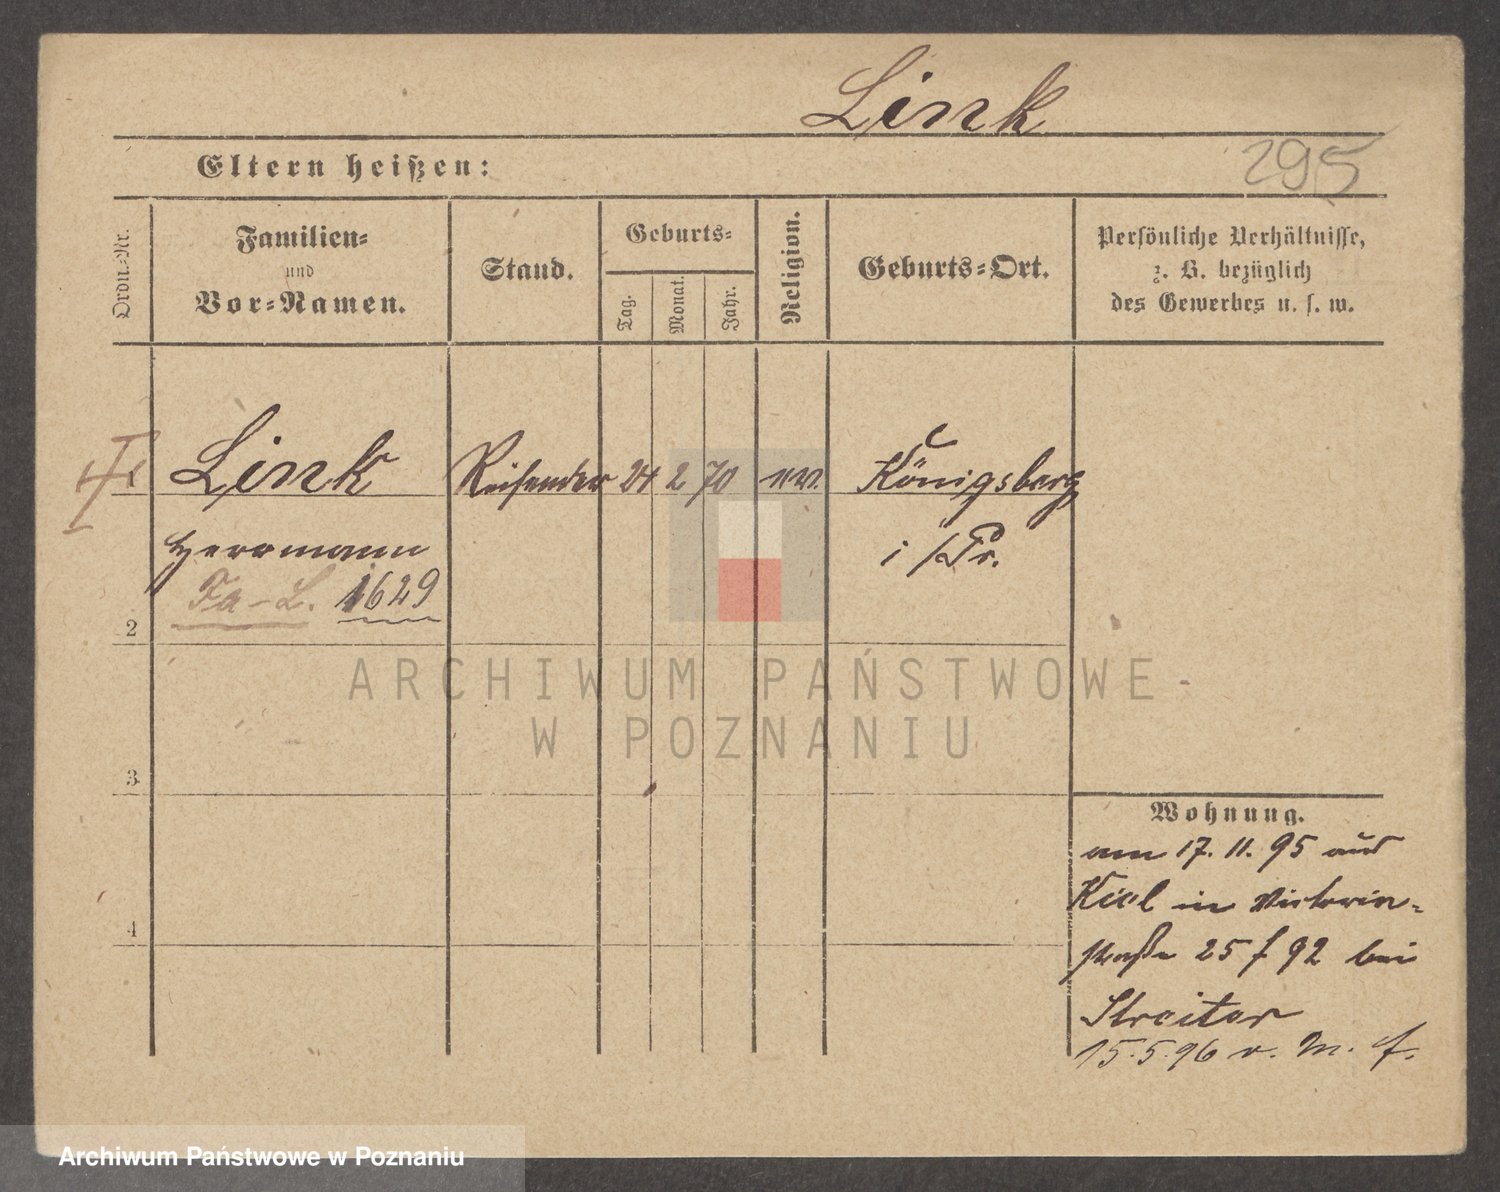 Link
295
Eltern heißen:
Ordn.-Nr.
Familien-
und
Vor-Namen.
Stand.
Geburts-
Tag.
Monat.
Jahr.
Religion.
Geburts-Ort.
Persönliche Verhältnisse,
z. B. bezüglich
des Gewerbes u. s. w.
Link Reisender 24 2 70 ev. Königsberg
Herrmann i/Pr.
Fa-L. 1629
2
ARCHIWUM PAŃSTWOWE
W POZNANIU
3
4
Wohnung.
am 17. 11. 95 aus
Kiel in Victoria-
straße 25 f 92 bei
Streiter
15.5.96 v. M. f.
Archiwum Państwowe w Poznaniu